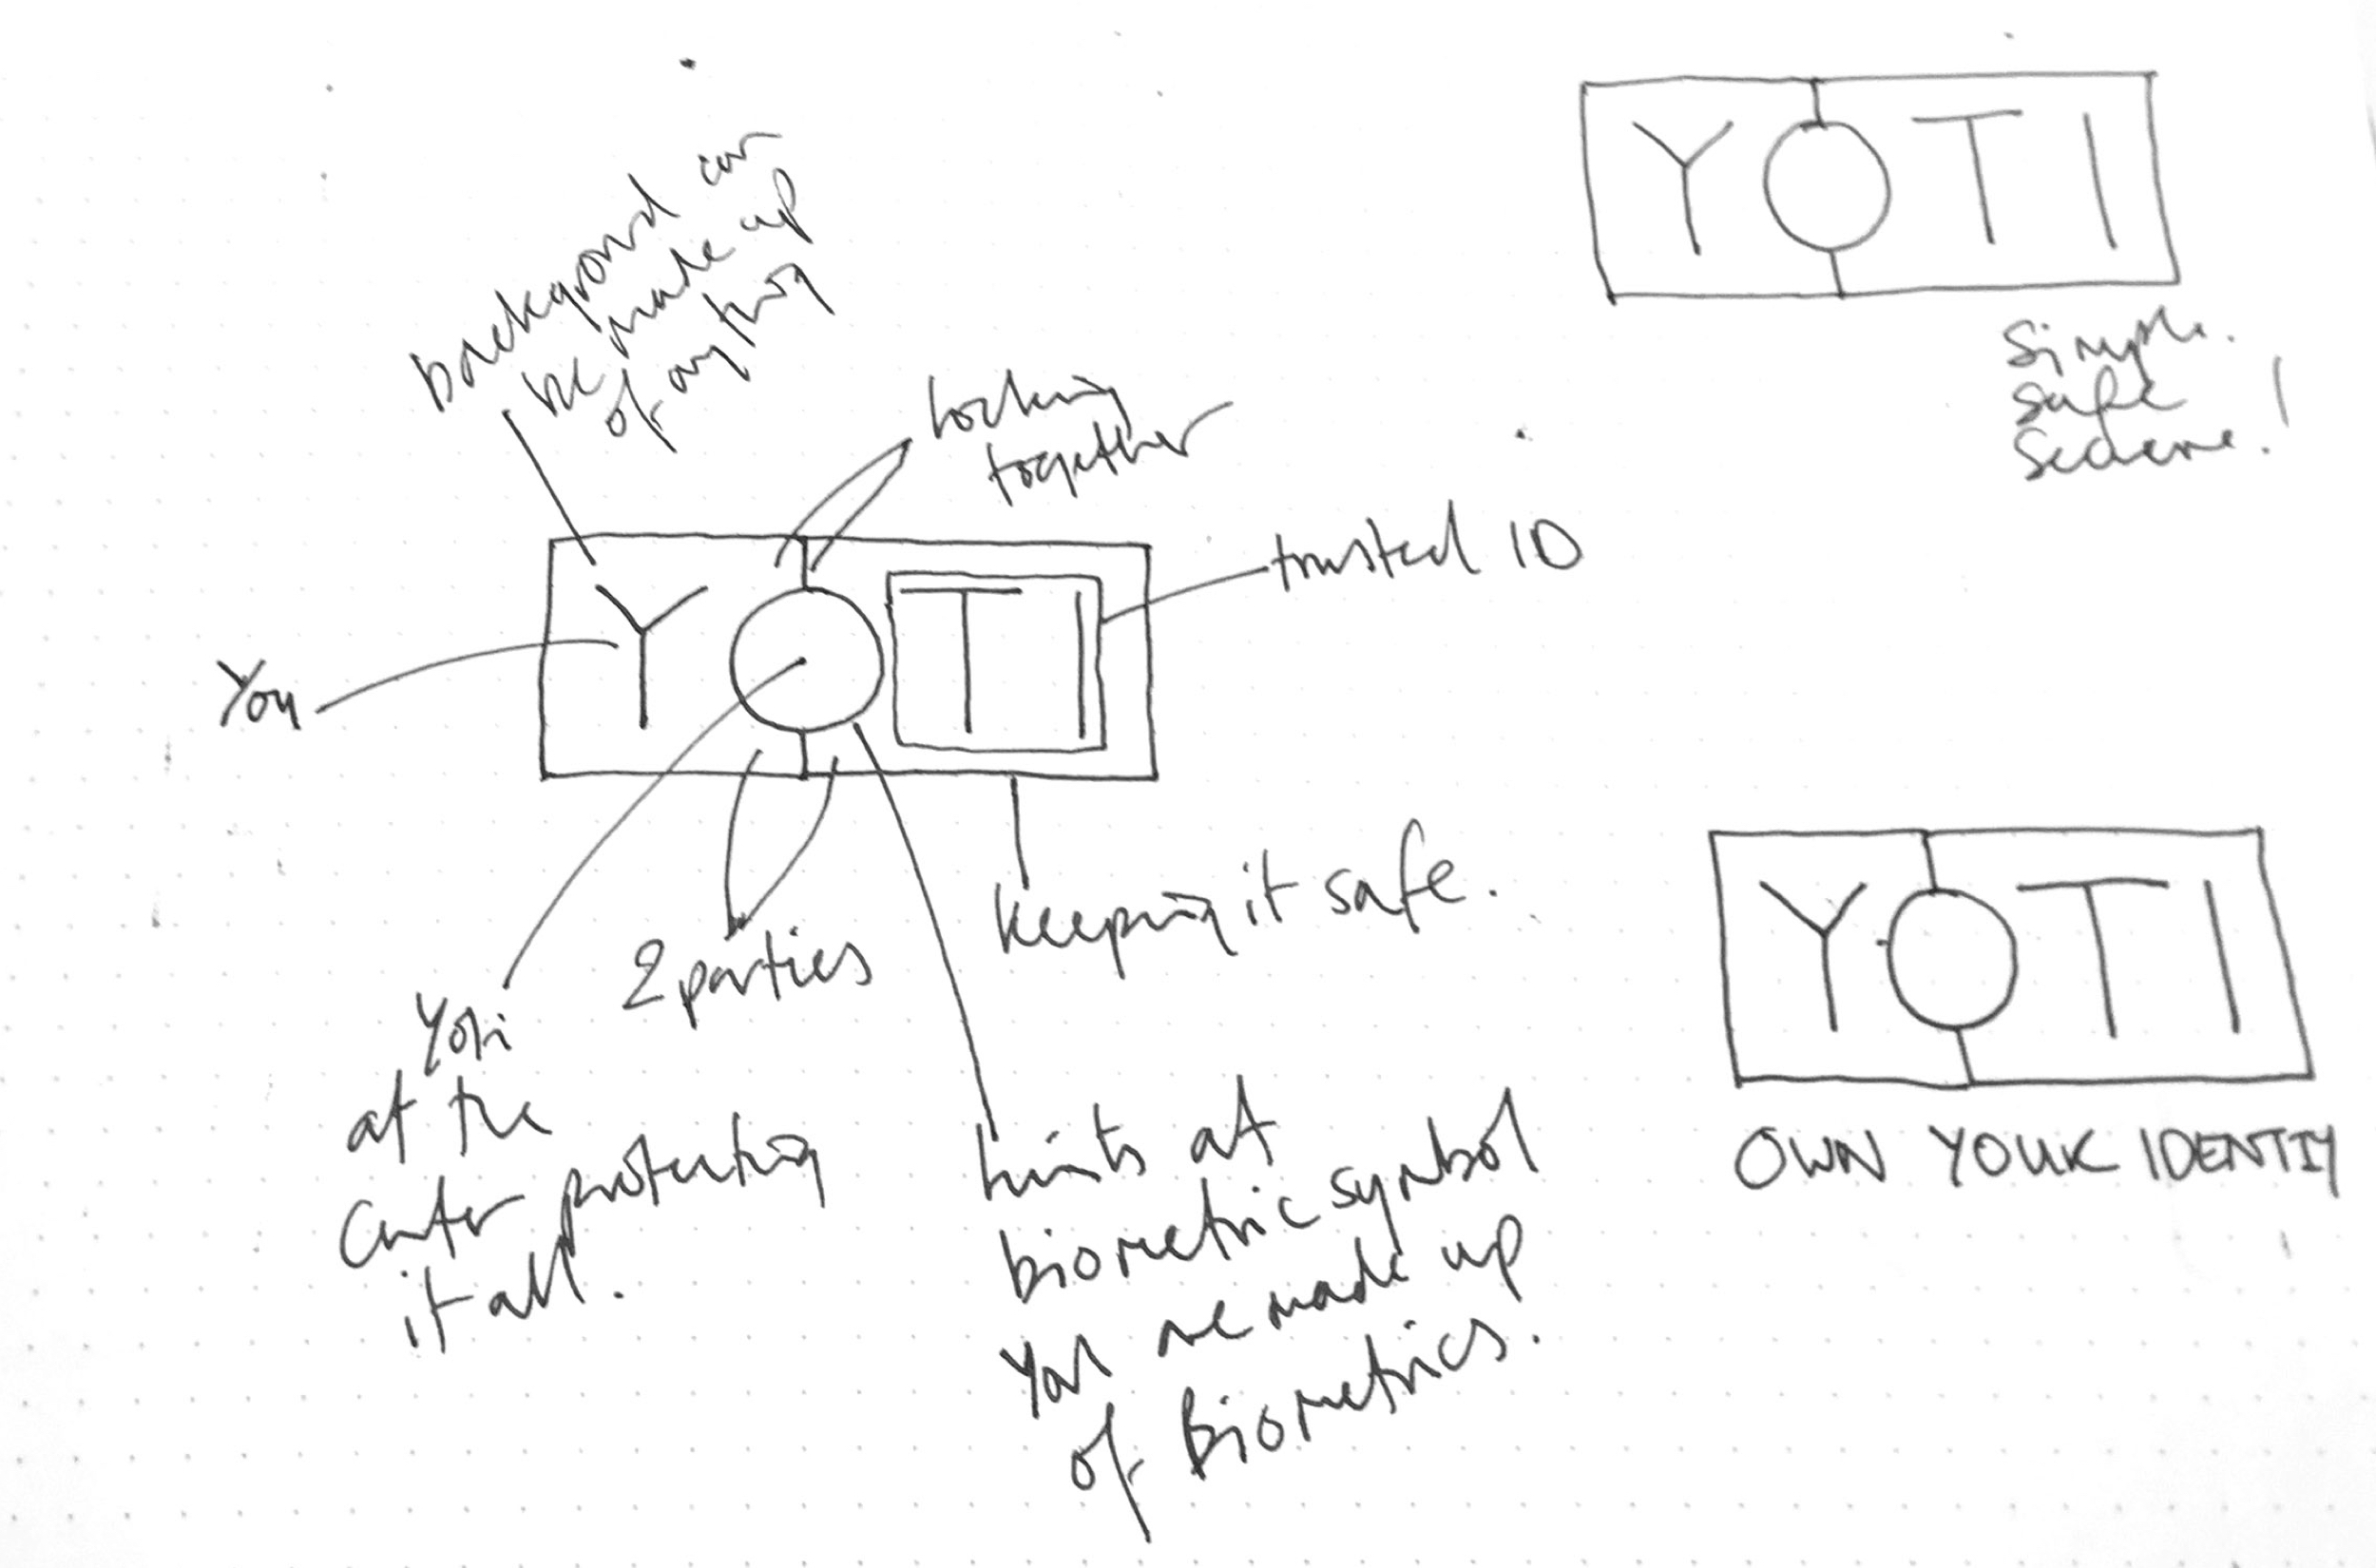 background can
be made up
of anything
locking
together
trusted ID
You
YOTI
2 parties
keeping it safe.
Yoti
at the
center protecting
it all.
hints at
biometric symbol
You are made up
of Biometrics.
YOTI
Simple.
Safe
Secure. !
YOTI
OWN YOUR IDENTIY